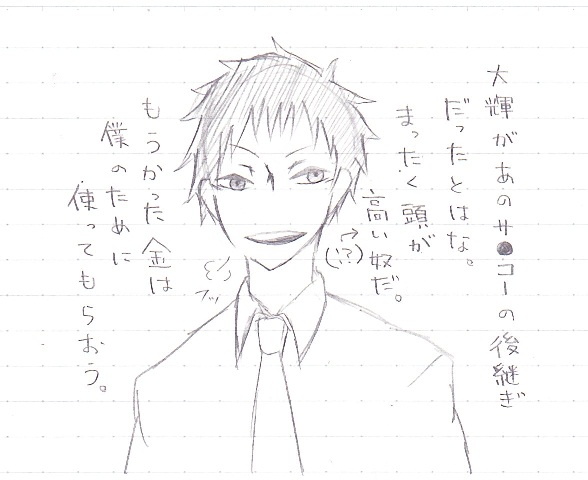 大輝があのサ●コーの後継ぎ
だったとはな。
まったく頭が
高い奴だ。
(!?)
もうかった金は
僕のために
使ってもらおう。
フッ